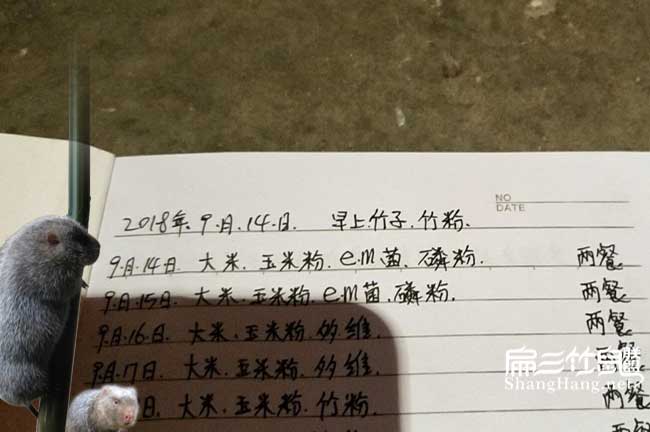 NO
DATE
2018年.9.月.14.日. 早上.竹子.竹粉.
9.月.14日. 大米.玉米粉.em菌.磷粉. 两餐
9.月.15日. 大米.玉米粉.em菌.磷粉. 两餐
9.月.16.日. 大米.玉米粉.多维. 两餐
9.月.17日. 大米.玉米粉.多维. 两餐
日. 大米.玉米粉.竹粉. 两餐
扁三竹鼠
ShangHang.net